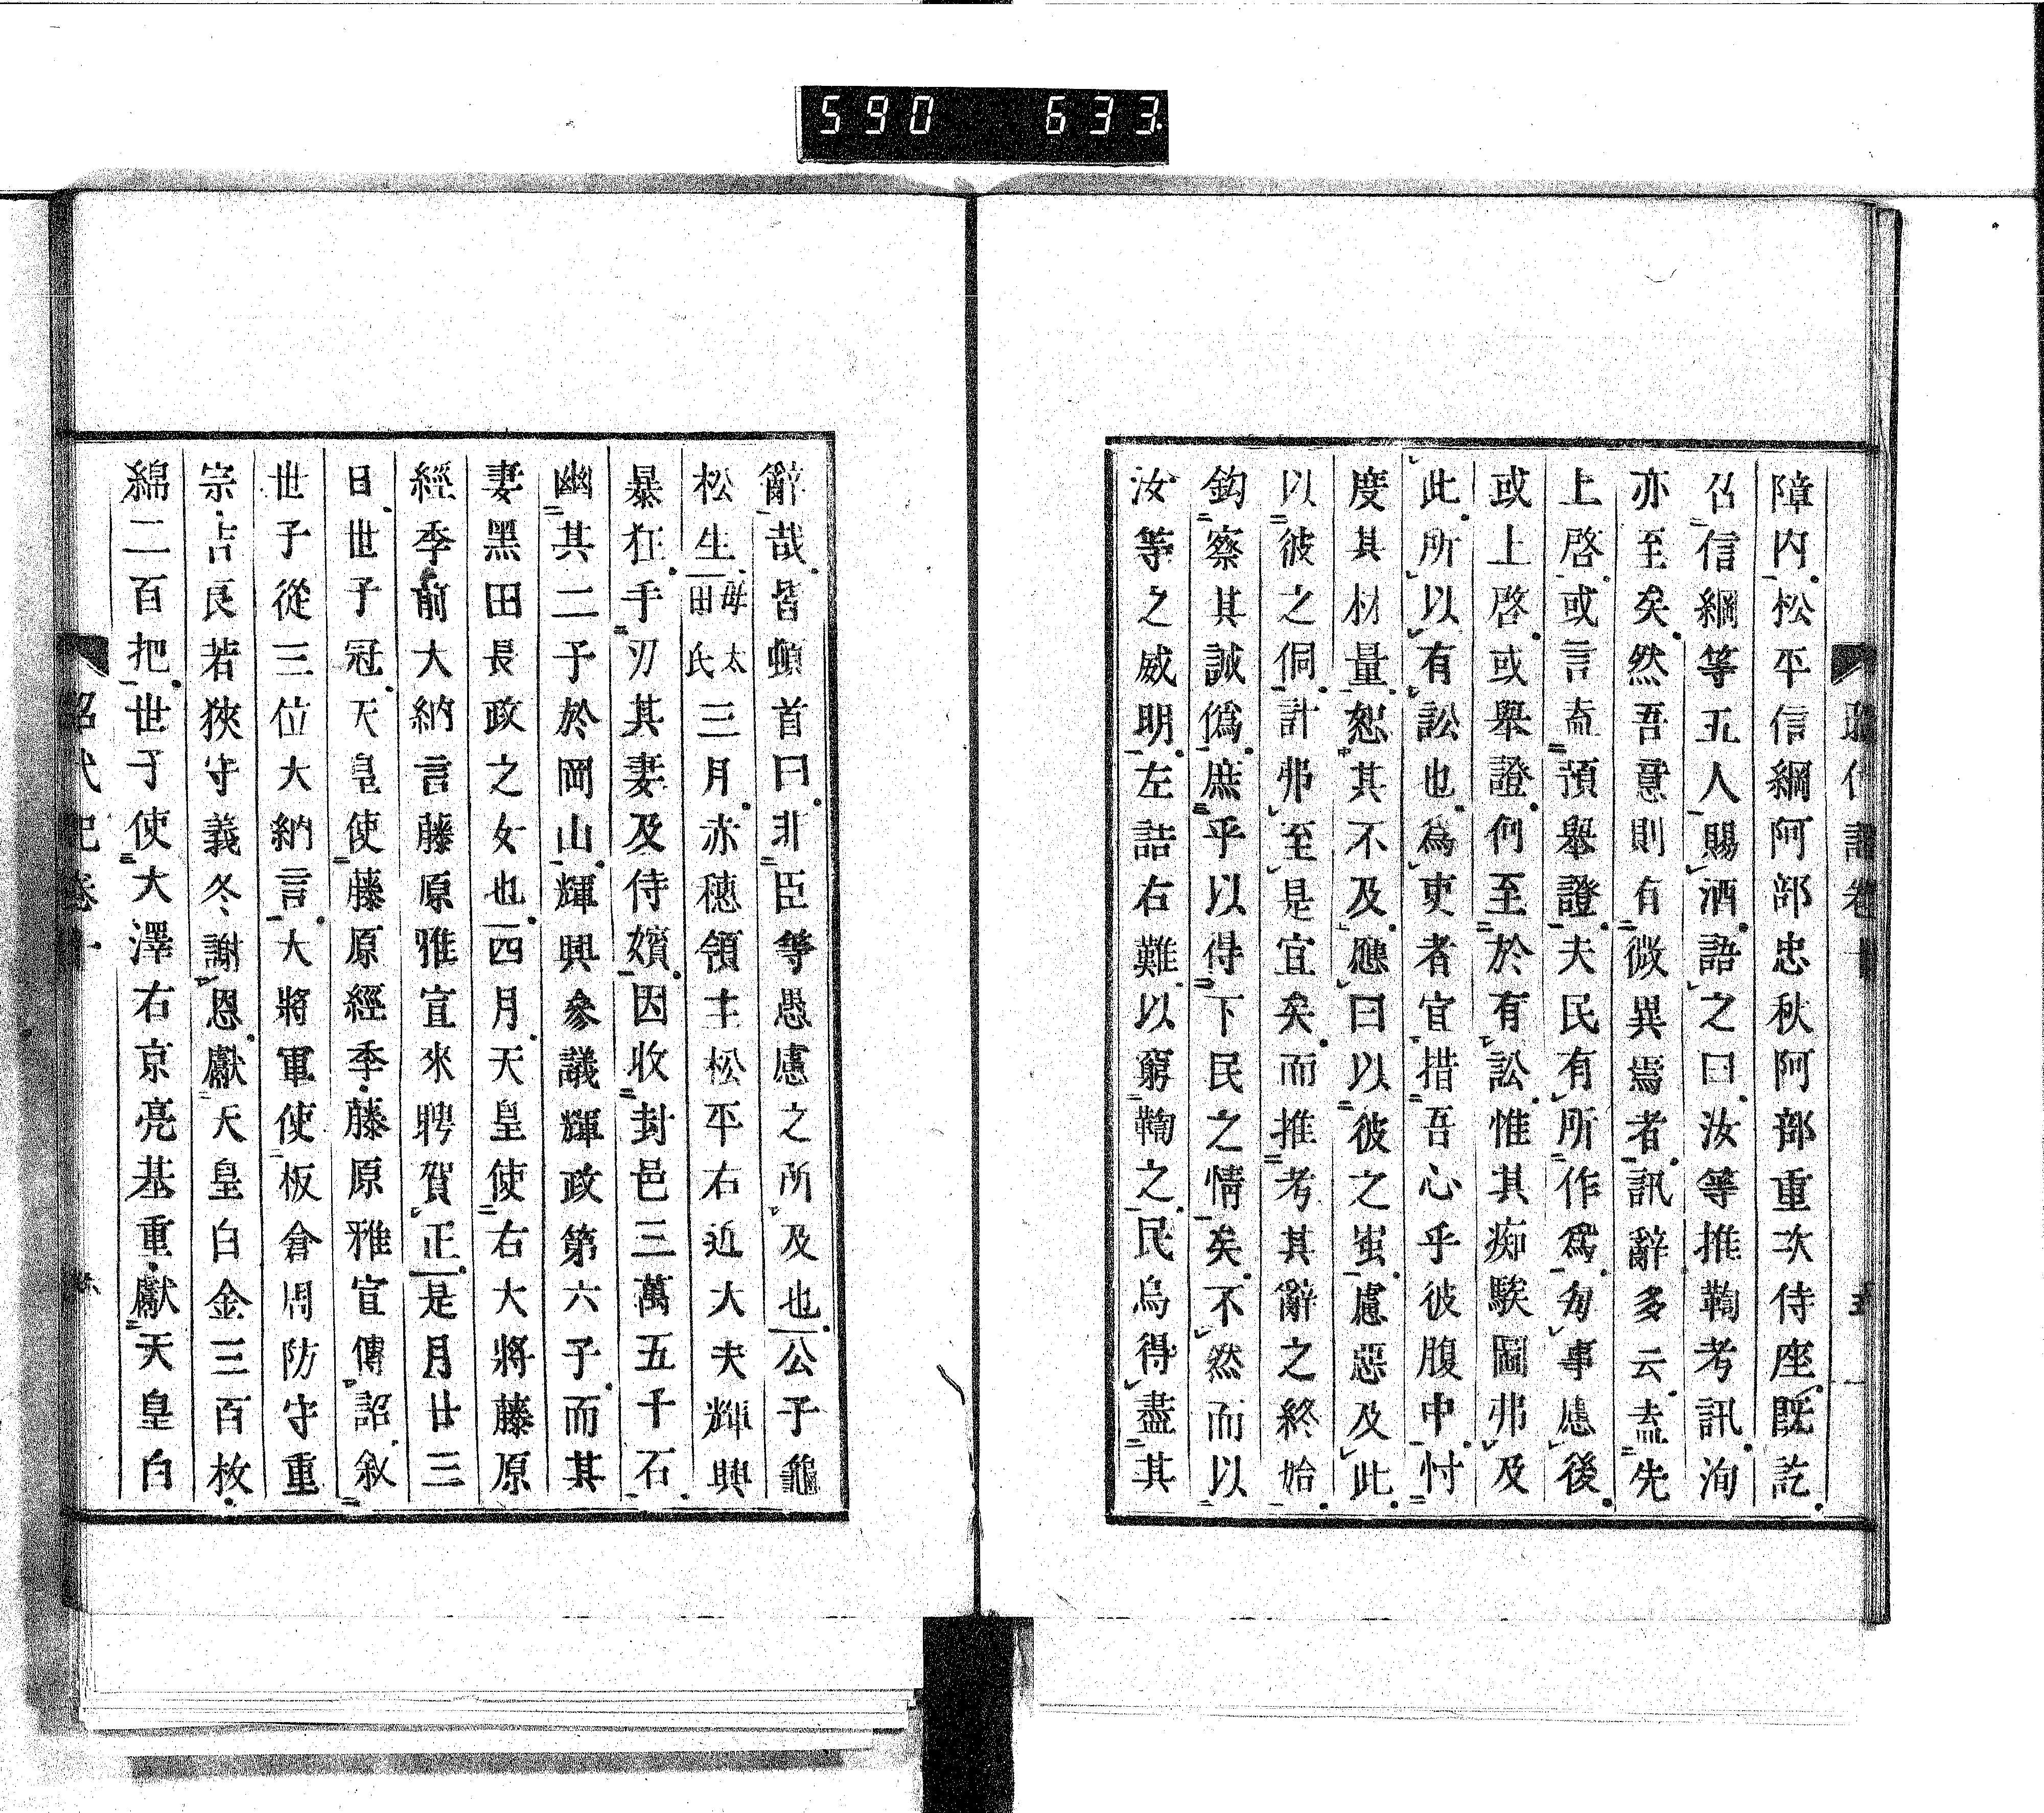 590 633
障内松平信綱阿部忠秋阿部重次侍座既訖
召信綱等五人賜酒語之曰汝等推鞫考訊洵
亦至矣然吾意則有微異焉者訊辭多云盍先
上啓或言盍預擧證夫民有所作爲匆事慮後
或上啓或擧證何至於有訟惟其痴騃圖弗及
此所以有訟也爲吏者宜措吾心乎彼腹中忖
度其材量恕其不及應曰以彼之蚩慮惡及此
以彼之侗計弗至是宜矣而推考其辭之終始
鈎察其誠僞庶乎以得下民之情矣不然而以
汝等之威明左詰右難以窮鞫之民烏得盡其
辭哉皆頓首曰非臣等愚慮之所及也公子龜
松生母太田氏三月赤穗領主松平右近大夫輝興
暴狂手刃其妻及侍嬪因收封邑三萬五千石
幽其二子於岡山輝興參議輝政第六子而其
妻黑田長政之女也四月天皇使右大將藤原
經季前大納言藤原雅宣來聘賀正是月廿三
日世子冠天皇使藤原經季藤原雅宣傳詔敘
世子從三位大納言大將軍使板倉周防守重
宗吉良若狹守義冬謝恩獻天皇白金三百枚
綿二百把世子使大澤右京亮基重獻天皇白
昭代記卷十